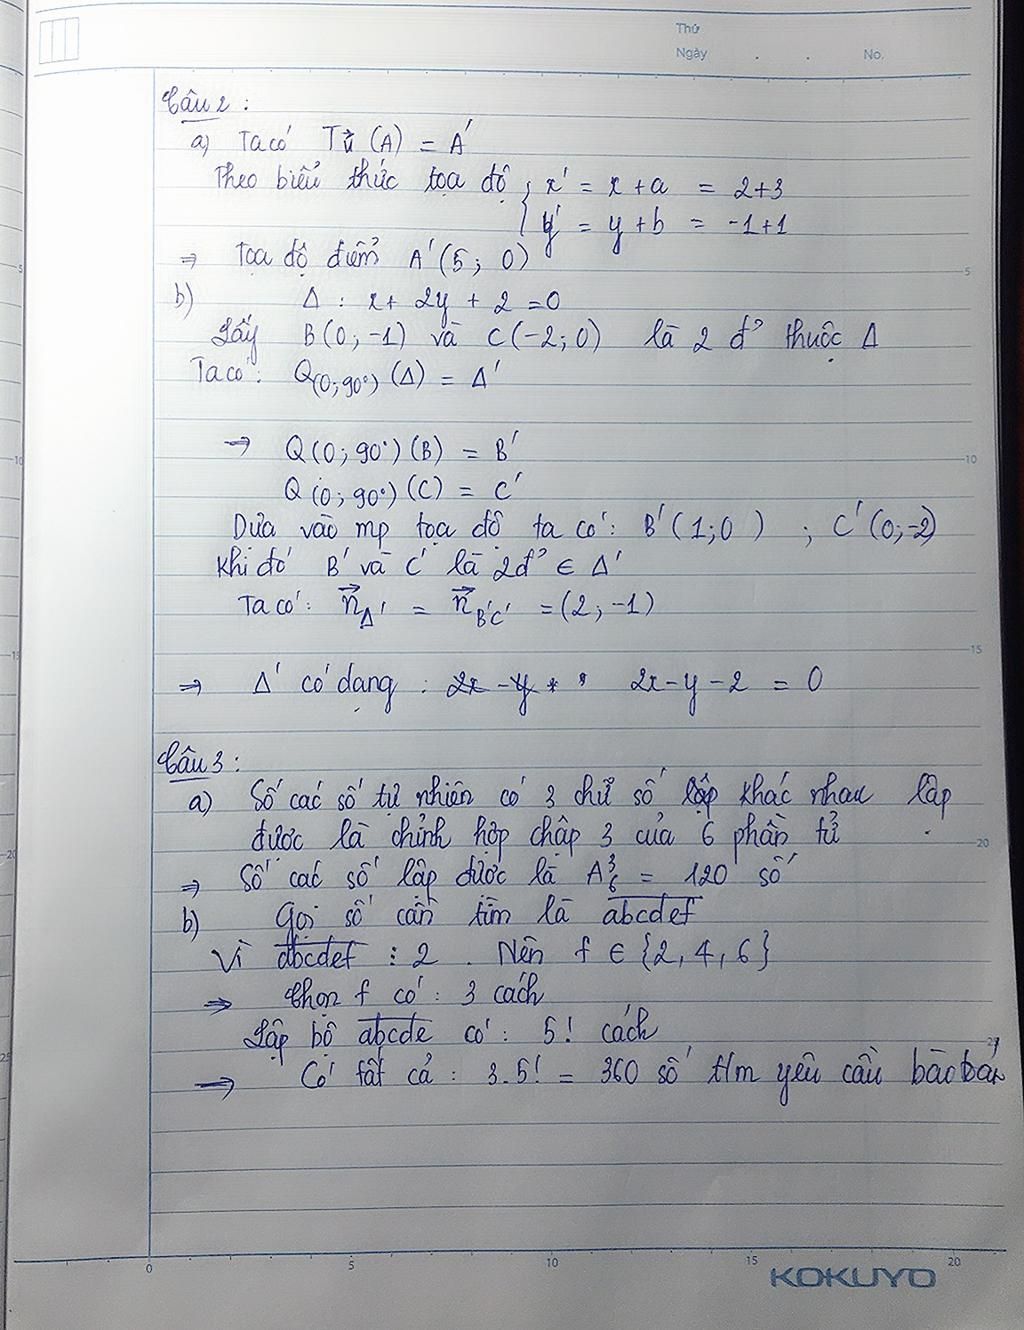 Thứ
Ngày . . No.
Câu 2 :
a) Ta có T u⃗ (A) = A'
Theo biểu thức tọa độ { x' = x + a = 2+3
y' = y + b = -1+1
⇒ Tọa độ điểm A'(5; 0)
b) Δ : x + 2y + 2 = 0
Lấy B(0; -1) và C(-2; 0) là 2 đ' thuộc Δ
Ta có: Q(0; 90°) (Δ) = Δ'
→ Q(0; 90°)(B) = B'
Q(0; 90°)(C) = C'
Dựa vào mp tọa độ ta có: B'(1;0) ; C'(0;-2)
Khi đó B' và C' là 2đ' ∈ Δ'
Ta có: n⃗Δ' = n⃗B'C' = (2; -1)
⇒ Δ' có dạng : 2x - y 2x - y - 2 = 0
Câu 3 :
a) Số các số tự nhiên có 3 chữ số lập khác nhau lập
được là chỉnh hợp chập 3 của 6 phần tử
⇒ Số các số lập được là A³₆ = 120 số
b) Gọi số cần tìm là abcdef
Vì abcdef ⋮ 2 . Nên f ∈ {2, 4, 6}
⇒ Chọn f có : 3 cách
Lập bộ abcde có : 5! cách
⇒ Có tất cả : 3.5! = 360 số t/m yêu cầu bài toán
5
10
15
20
25
5
10
15
20
25
0 5 10 15 20
KOKUYO